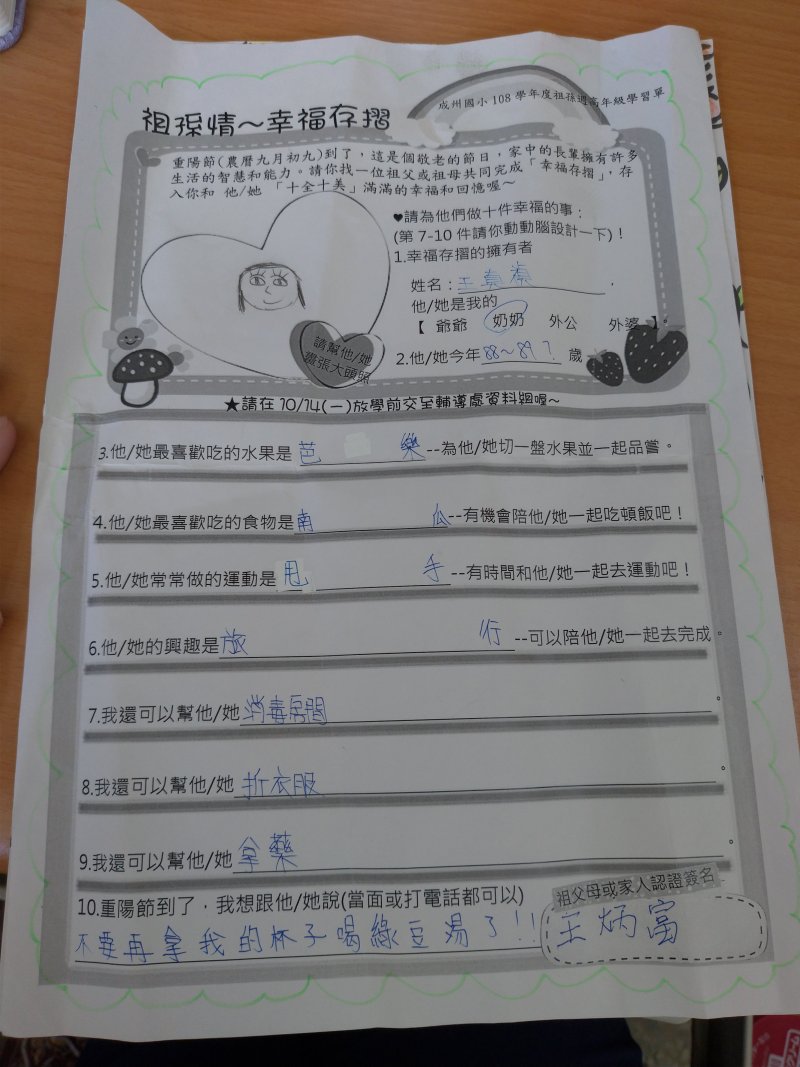 成州國小 108 學年度祖孫週高年級學習單
祖孫情～幸福存摺
重陽節(農曆九月初九)到了，這是個敬老的節日，家中的長輩擁有許多
生活的智慧和能力。請你找一位祖父或祖母共同完成「幸福存摺」，存
入你和 他/她 「十全十美」滿滿的幸福和回憶喔～
♥請為他們做十件幸福的事：
(第 7-10 件請你動動腦設計一下)！
1.幸福存摺的擁有者
姓名：王真
他/她是我的
【 爺爺 奶奶 外公 外婆 】。
請幫他/她
畫張大頭照
2.他/她今年 88～89？ 歲
★請在 10/14(一)放學前交至輔導處資料組喔～
3.他/她最喜歡吃的水果是 芭 樂--為他/她切一盤水果並一起品嘗。
4.他/她最喜歡吃的食物是南 瓜--有機會陪他/她一起吃頓飯吧！
5.他/她常常做的運動是 甩 手 --有時間和他/她一起去運動吧！
6.他/她的興趣是旅 行 --可以陪他/她一起去完成。
7.我還可以幫他/她消毒房間。
8.我還可以幫他/她 折衣服。
9.我還可以幫他/她 拿藥。
10.重陽節到了，我想跟他/她說(當面或打電話都可以)
不要再拿我的杯子喝綠豆湯了!!
祖父母或家人認證簽名
王炳富